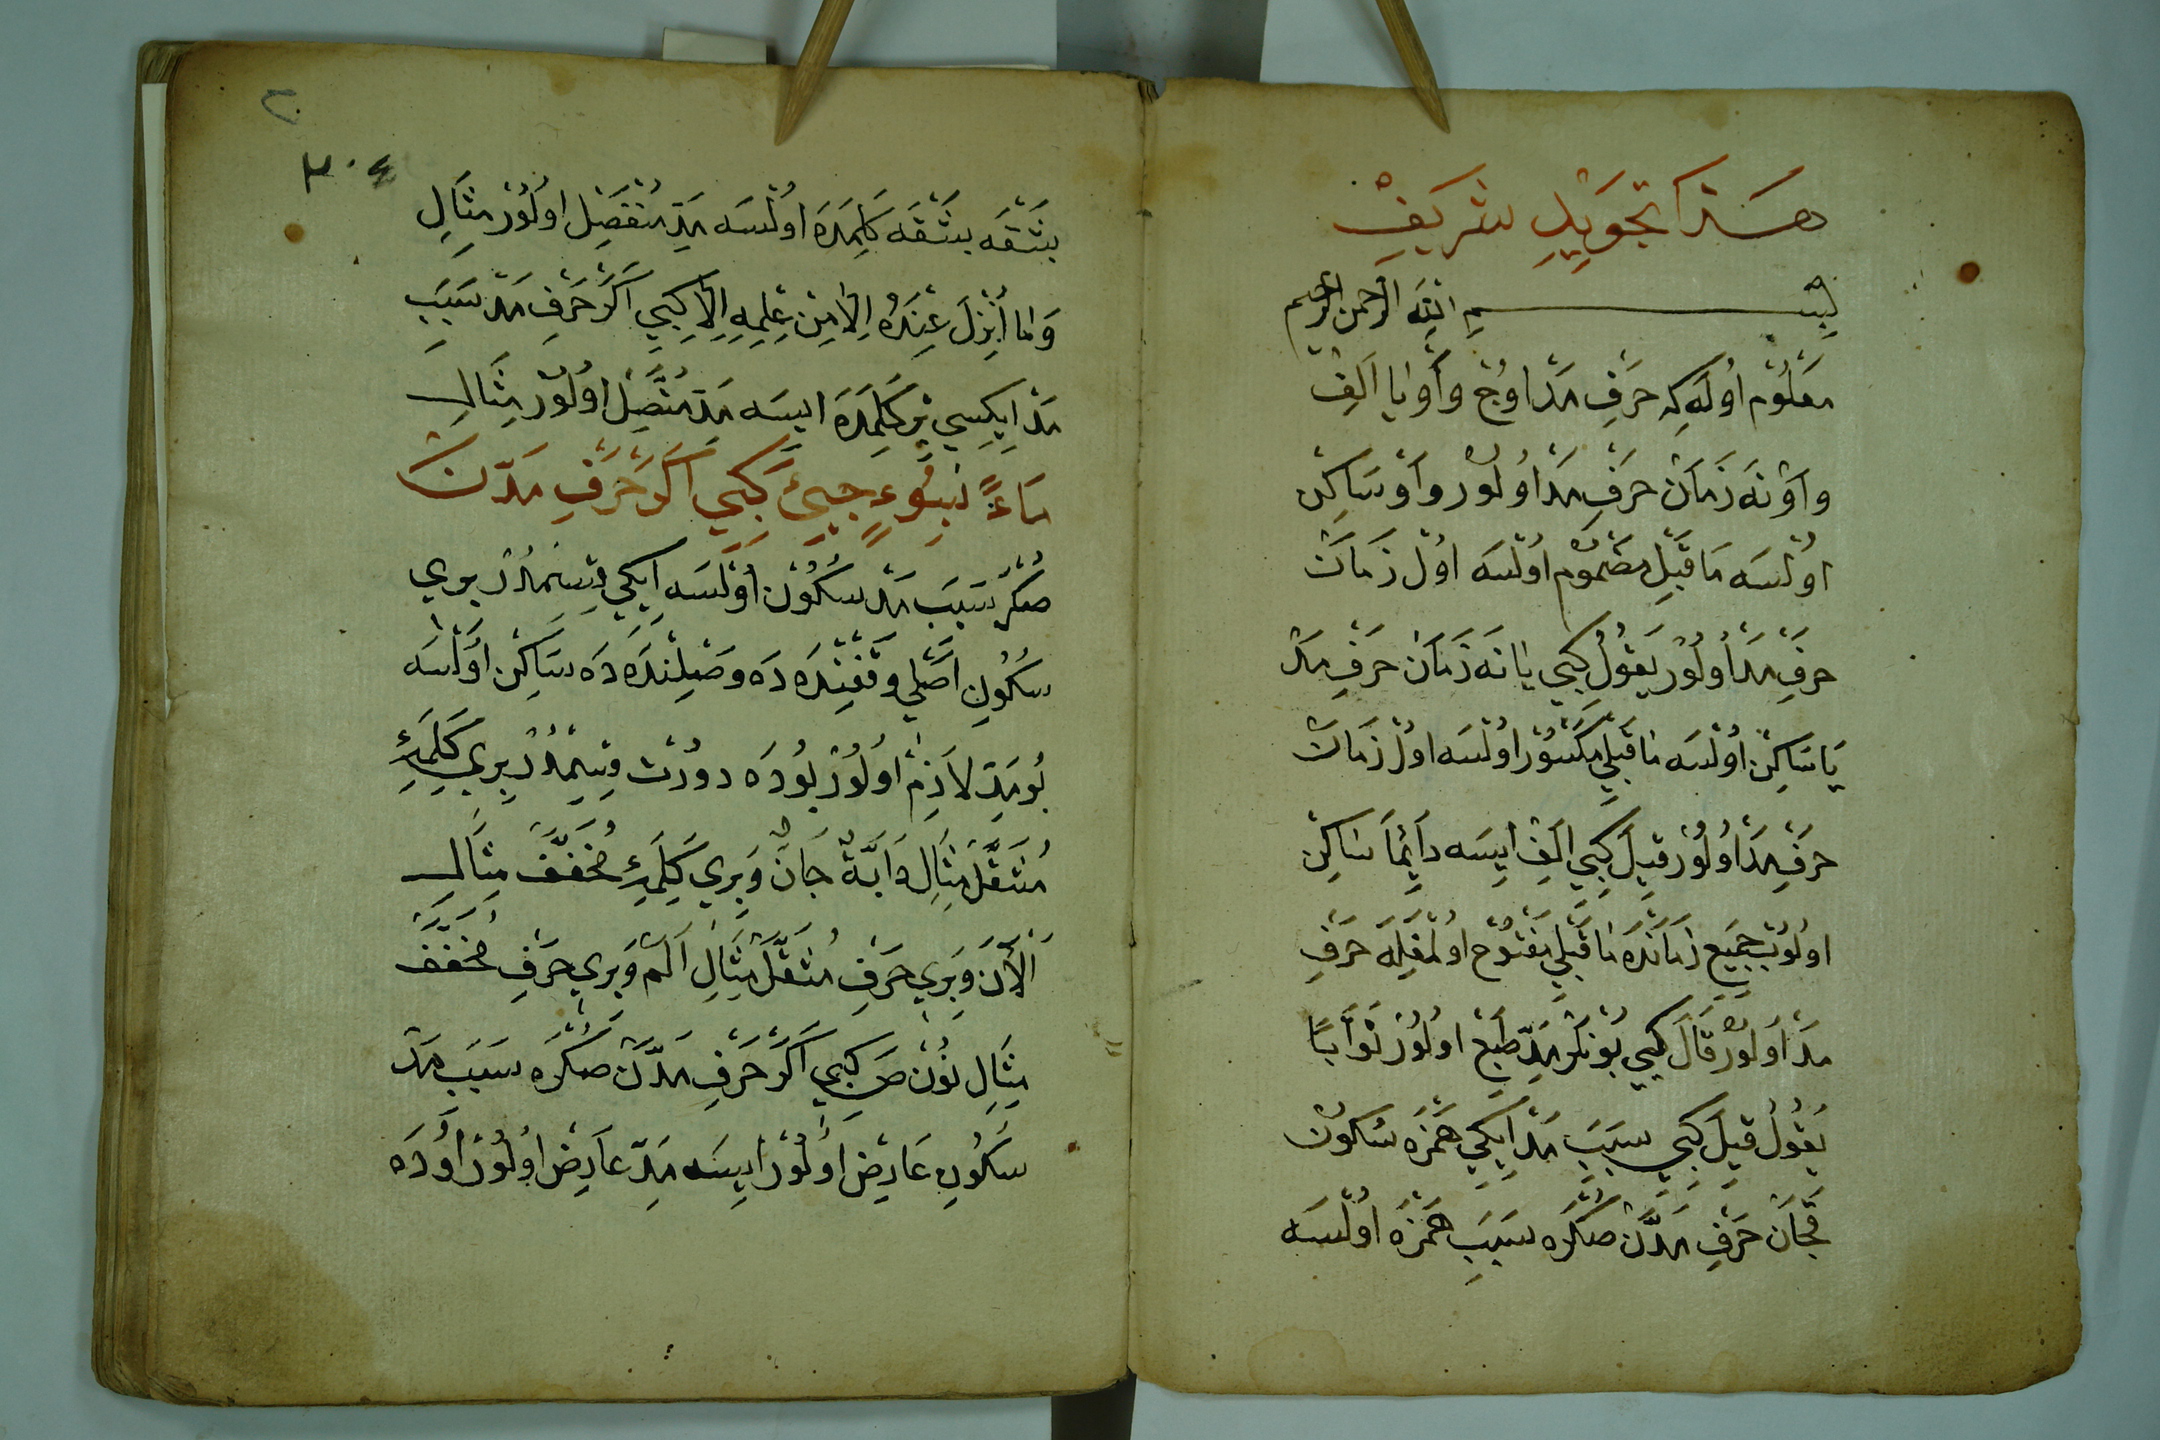 هَذَا تَجْوِيدِ شَرِيفْ
بِسْمِ اللهِ الرَّحْمَنِ الرَّحِيمِ
مَعْلُومْ اُولَه كِه حَرْفِ مَدْ اُوچْ وَاوْ يَا اَلِفْ
وَاوْ نَه زَمَانْ حَرْفِ مَدْ اُولُورْ وَاوْ سَاكِنْ
اُولْسَه مَا قَبْلِ مَضْمُومْ اُولْسَه اُولْ زَمَانْ
حَرْفِ مَدْ اُولُورْ يَقُولُ كِبِي يَا نَه زَمَانْ حَرْفِ مَدْ
يَا سَاكِنْ اُولْسَه مَا قَبْلِي مَكْسُورْ اُولْسَه اُولْ زَمَانْ
حَرْفِ مَدْ اُولُورْ قِيلَ كِبِي اَلِفْ اِيسَه دَائِمَا سَاكِنْ
اُولُوبْ جَمِيعِ زَمَانْدَه مَا قَبْلِي مَفْتُوحْ اُولْمَغِلَه حَرْفِ
مَدْ اُولُورْ قَالَ كِبِي بُونْلَرْ مَدِّ طَبْعْ اُولُورْ تَوَّابًا
يَقُولُ قِيلَ كِبِي سَبَبِ مَدْ اِيكِي هَمْزَه سُكُونْ
قَچَانْ حَرْفِ مَدَّنْ صُكْرَه سَبَبِ هَمْزَه اُولْسَه
بَشْقَه بَشْقَه كَلِمَدَه اُولْسَه مَدِّ مُنْفَصِلْ اُولُورْ مِثَالِ
وَمَا اُنْزِلَ عِنْدَهُ اِلَّا مِنْ عِلْمِهِ اِلَّا كِبِي اَكَرْ حَرْفِ مَدْ سَبَبِ
مَدْ اِيكِسِي بِرْ كَلِمَدَه اِيسَه مَدِّ مُتَّصِلْ اُولُورْ مِثَالِ
مَاءً بِسُوءٍ جِيءَ كِبِي اَكَرْ حَرْفِ مَدَّنْ
صُكْرَ سَبَبِ مَدْ سُكُونْ اُولْسَه اِيكِي قِسِمْدُرْ بِرِي
سُكُونِ اَصْلِي وَقْفِنْدَه دَه وَصْلِنْدَه دَه سَاكِنْ اُولْسَه
بُو مَدِّ لَازِمْ اُولُورْ بُودَه دُورْتْ قِسِمْدُرْ بِرِي كَلِمَۀِ
مُثَقَّلْ مِثَالِ دَابَّةٌ جَانٌّ وَبِرِي كَلِمَۀِ مُخَفَّفْ مِثَالِ
اَلْاٰنَ وَبِرِي حَرْفِ مُثَقَّلْ مِثَالِ اَلَمْ وَبِرِي حَرْفِ مُخَفَّفْ
مِثَالِ نُونْ صَ كِبِي اَكَرْ حَرْفِ مَدَّنْ صُكْرَه سَبَبِ مَدْ
سُكُونِ عَارِضْ اُولُورْ اِيسَه مَدِّ عَارِضْ اُولُورْ اُودَه